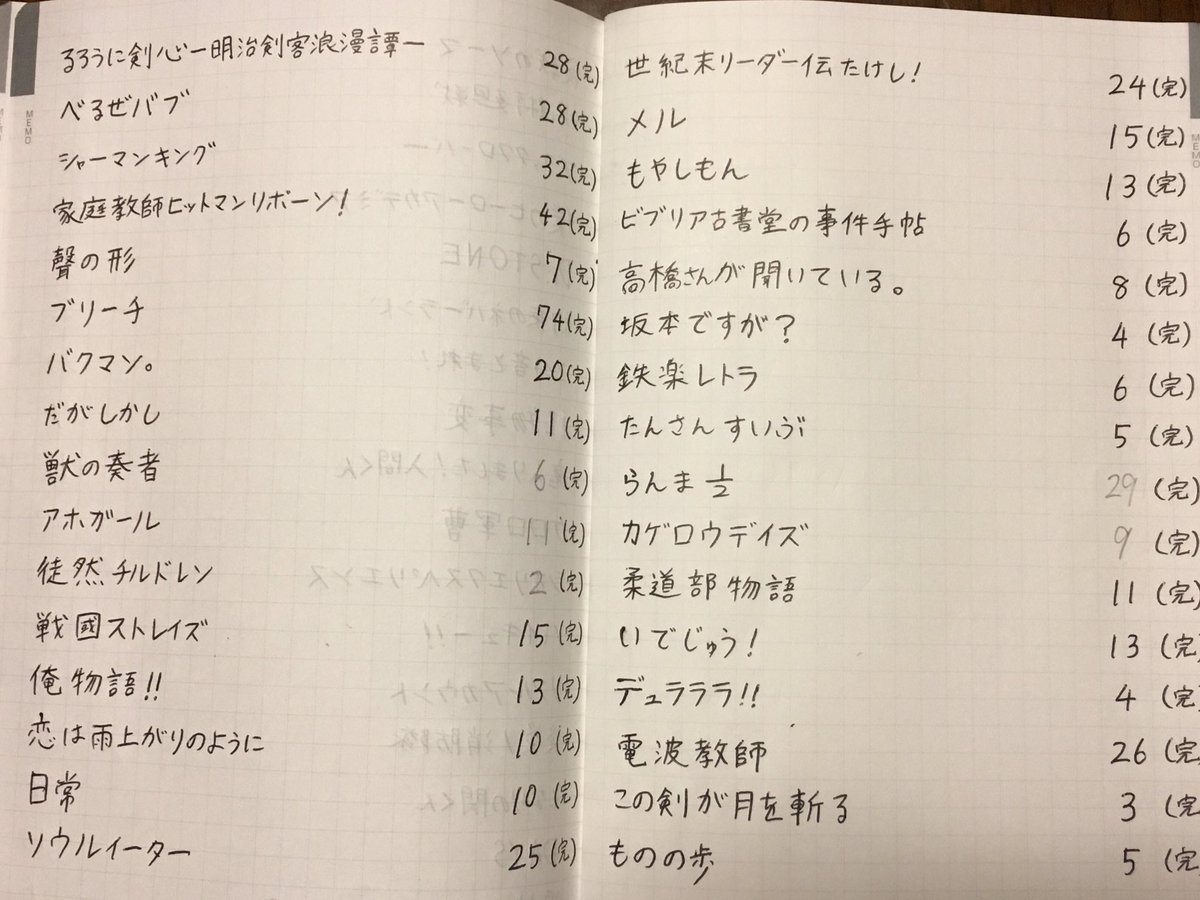 MEMO
るろうに剣心ー明治剣客浪漫譚ー 28(完)
べるぜバブ 28(完)
シャーマンキング 32(完)
家庭教師ヒットマンリボーン! 42(完)
聲の形 7(完)
ブリーチ 74(完)
バクマン。 20(完)
だがしかし 11(完)
獣の奏者 6(完)
アホガール 11(完)
徒然チルドレン 2(完)
戦國ストレイズ 15(完)
俺物語!! 13(完)
恋は雨上がりのように 10(完)
日常 10(完)
ソウルイーター 25(完)
世紀末リーダー伝たけし! 24(完)
メル 15(完)
もやしもん 13(完)
ビブリア古書堂の事件手帖 6(完)
高橋さんが聞いている。 8(完)
坂本ですが? 4(完)
鉄楽レトラ 6(完)
たんさんすいぶ 5(完)
らんま1/2 29(完)
カゲロウデイズ 9(完)
柔道部物語 11(完)
いでじゅう! 13(完
デュラララ!! 4(完
電波教師 26(完
この剣が月を斬る 3(完
ものの歩 5(完
MEMO